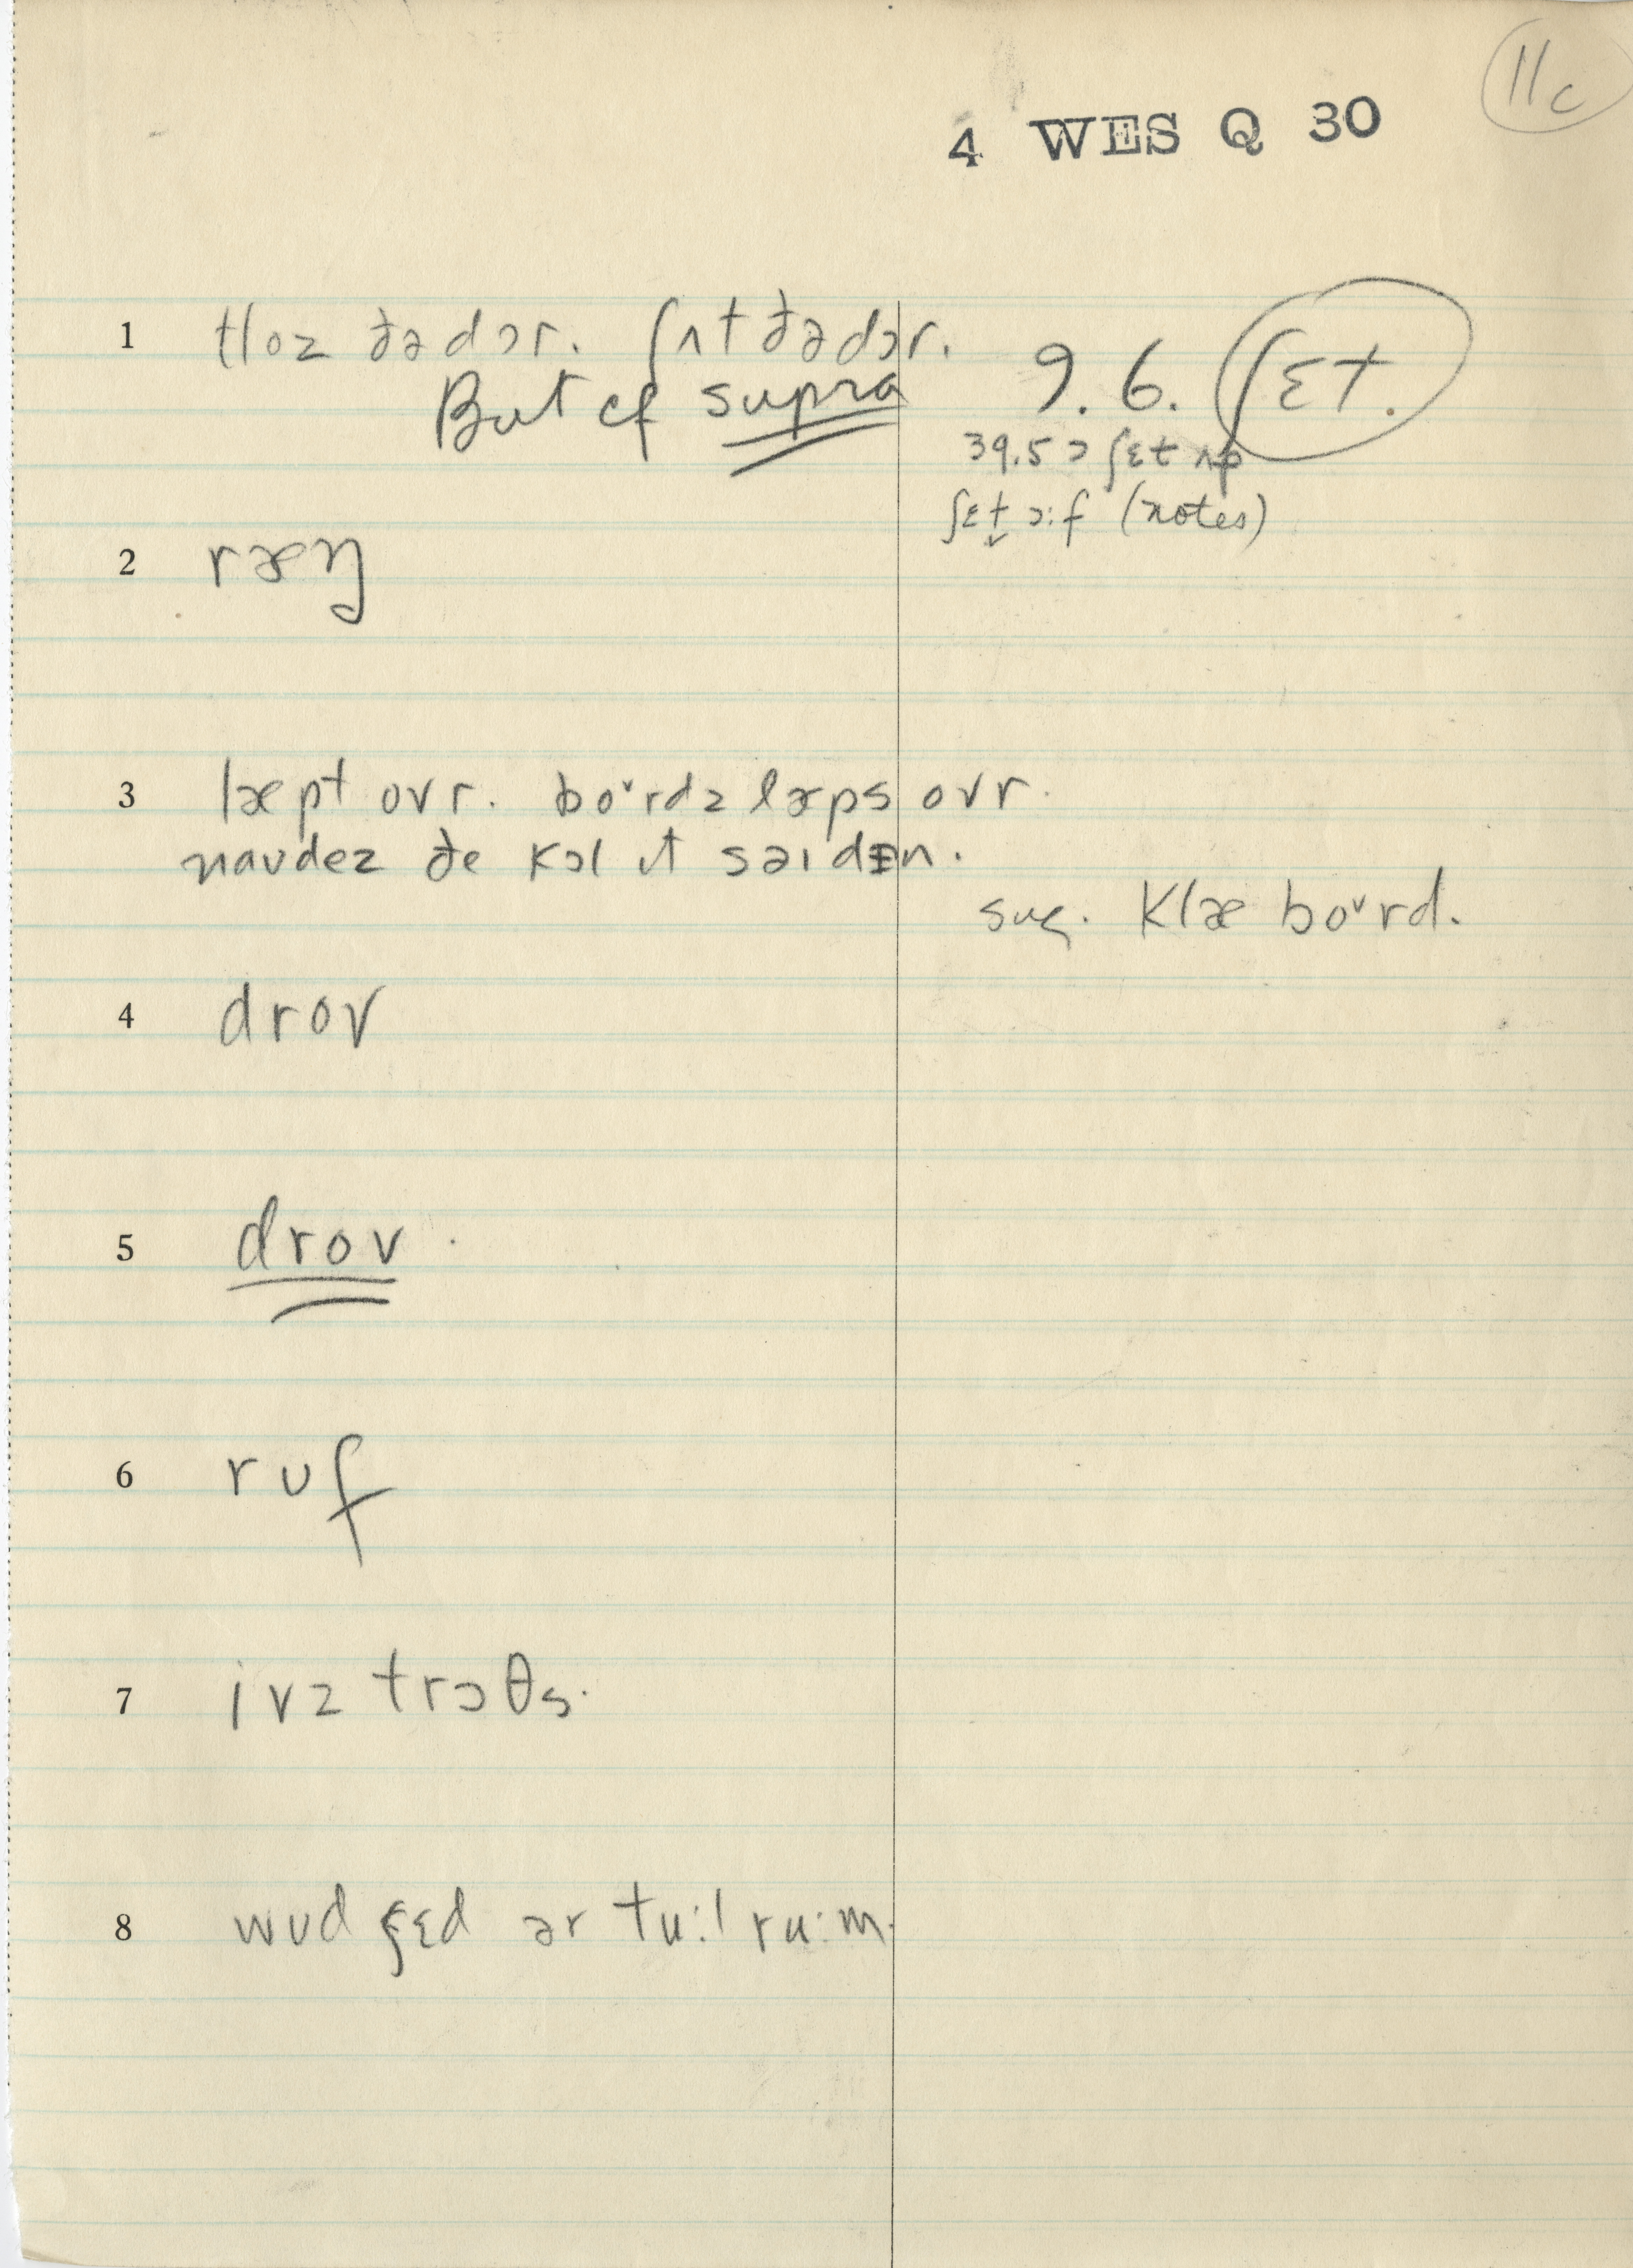 11c
4 WES Q 30
1 tloz ðə dɔr. ʃʌt ðə dɔr.
But cf supra
9.6. ʃɛt.
39.5 ɔ ʃɛt ʌp
ʃɛt ɔ:f (notes)
2 ræŋ
3 læpt ovr. boᵛrdz læps ovr.
naudez ðe kɔl ɪt səɪdɪn.
sug. klæ boᵛrd.
4 drov
5 drov.
6 rʊf
7 ivz trɔθs.
8 wʊd ʃɛd ər tu:l ru:m.